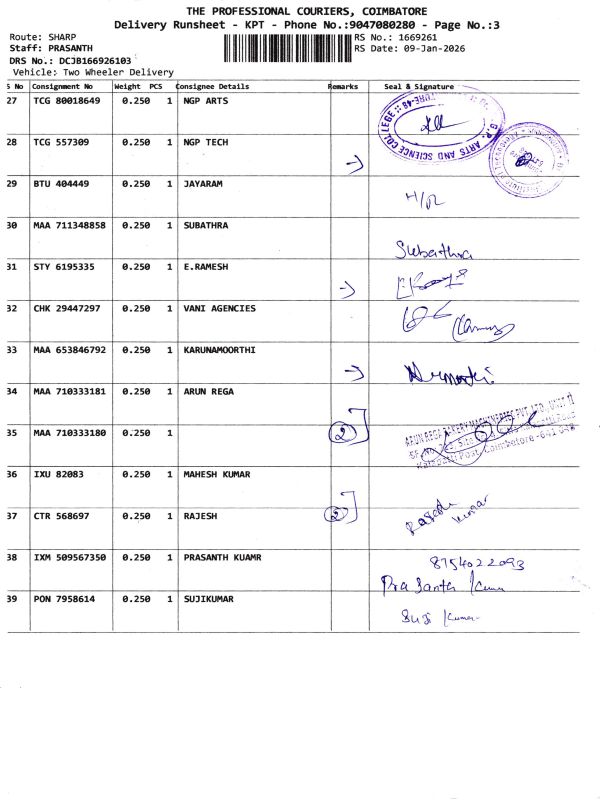 THE PROFESSIONAL COURIERS, COIMBATORE
Delivery Runsheet - KPT - Phone No.:9047080280 - Page No.:3
Route: SHARP
RS No.: 1669261
Staff: PRASANTH
RS Date: 09-Jan-2026
DRS No.: DCJB166926103
Vehicle: Two Wheeler Delivery
S No Consignment No Weight PCS Consignee Details Remarks Seal & Signature
27 TCG 80018649 0.250 1 NGP ARTS
ARTS AND SCIENCE COLLEGE
28 TCG 557309 0.250 1 NGP TECH
29 BTU 404449 0.250 1 JAYARAM
H/R
30 MAA 711348858 0.250 1 SUBATHRA
Subathra
31 STY 6195335 0.250 1 E.RAMESH
32 CHK 29447297 0.250 1 VANI AGENCIES
33 MAA 653846792 0.250 1 KARUNAMOORTHI
34 MAA 710333181 0.250 1 ARUN REGA
35 MAA 710333180 0.250 1
2
ARUN REGA BAKERY MACHINERIES PVT LTD., UNIT II
Post, Coimbatore - 641 048
36 IXU 82083 0.250 1 MAHESH KUMAR
37 CTR 568697 0.250 1 RAJESH
2
Rajesh
kumar
38 IXM 509567350 0.250 1 PRASANTH KUAMR
8754022093
Prasanth Kumar
39 PON 7958614 0.250 1 SUJIKUMAR
Suji Kumar